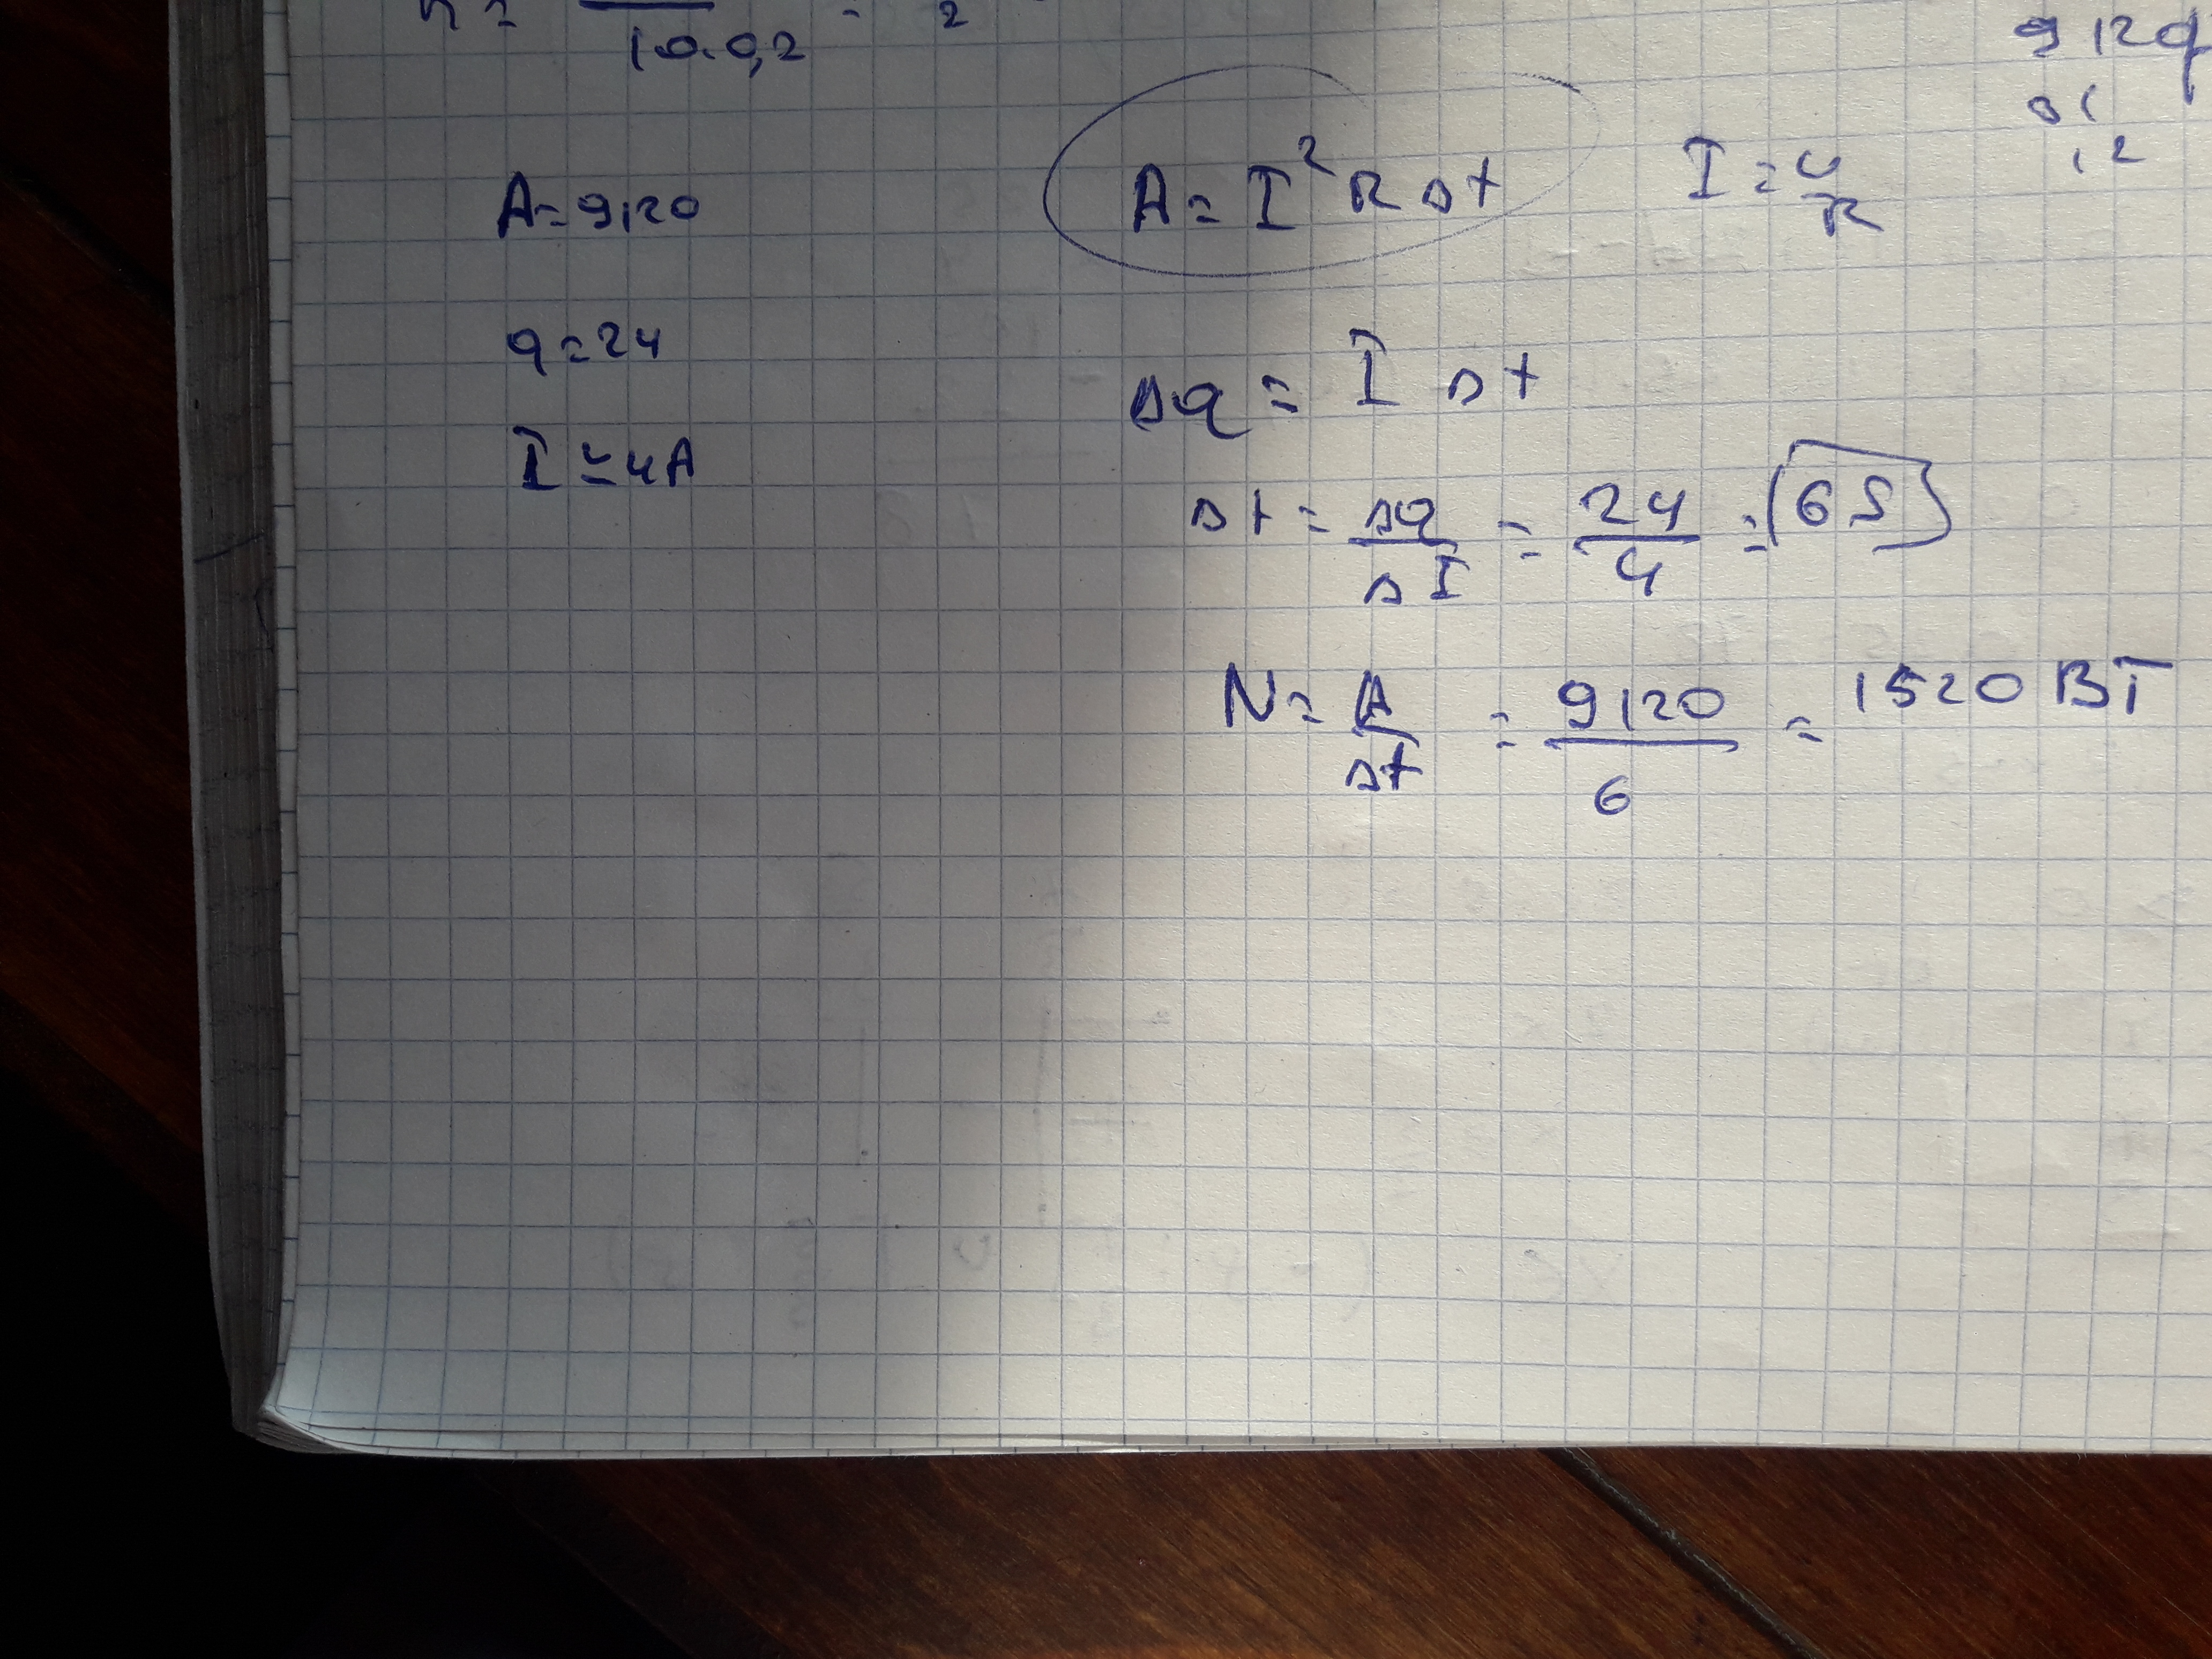 10.0,2 = 2
912q
A=9120
A=I²RΔt
I=U/R
q=24
Δq = I Δt
I=4A
Δt = Δq/ΔI = 24/4 = 6S
N = A/Δt = 9120/6 = 1520 BT